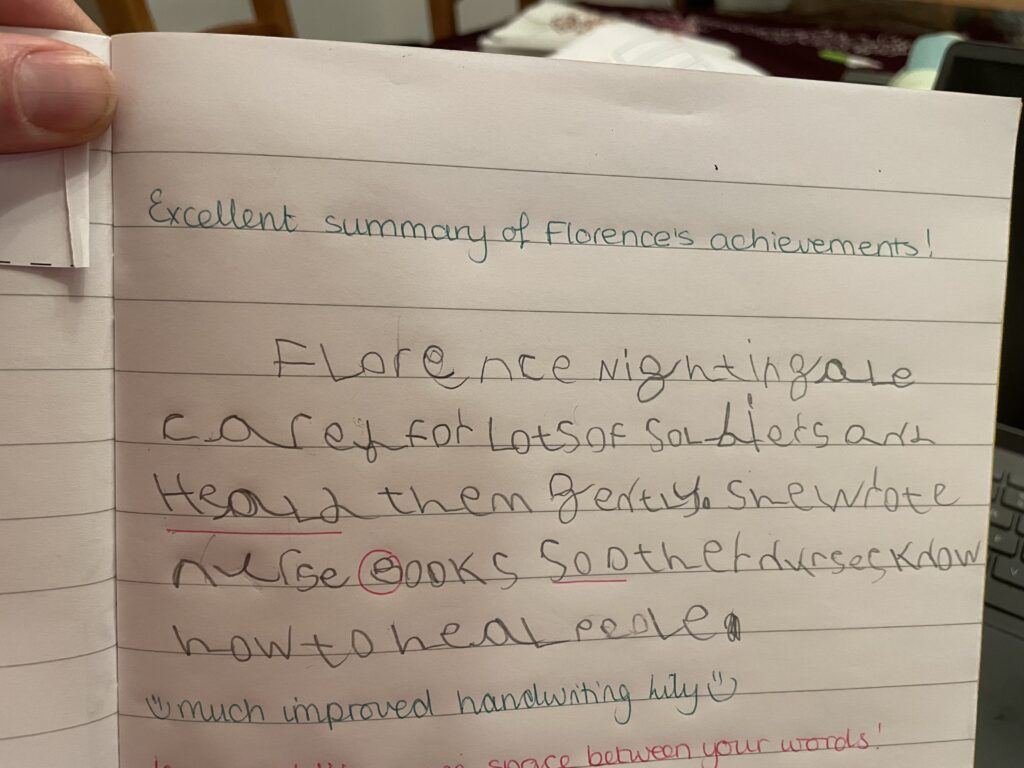 Excellent summary of Florence's achievements!
Florence Nightingale
cared for Lots of Soldiers and
Heald them gently. She wrote
nurse books So other nurses know
how to heal people.
much improved handwriting Lily
space between your words!